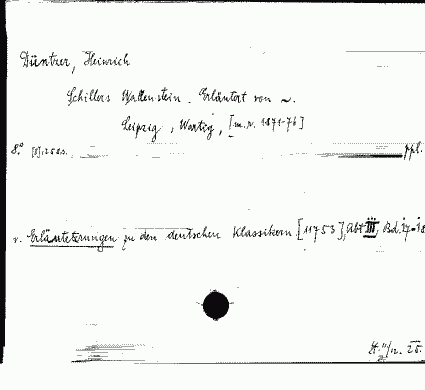 Düntzer, Heinrich
Schillers Wallenstein. Erläutert von ~.
Leipzig, Wartig, [m.r. 1871-76]
8.° [8], 258 s. ppl.
v. Erläuterungen zu den deutschen Klassikern [11753], Abt III, Bd. 17-18